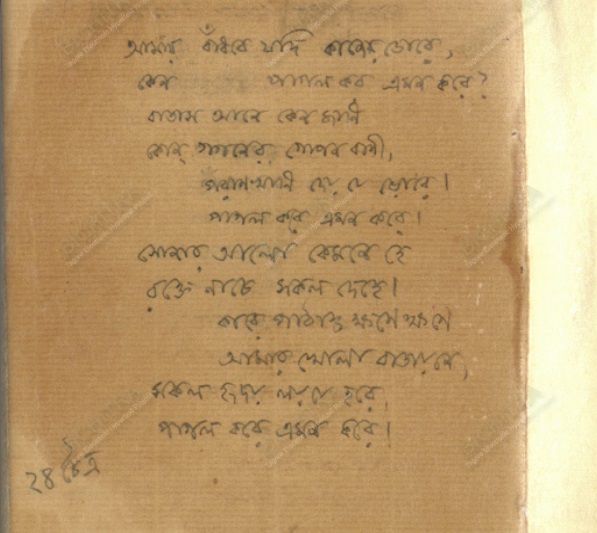 আমায় বাঁধবে যদি কাজের ডোরে,
কেন পাগল কর এমন করে?
বাতাস আনে কেন জানি
কোন্ গগনের গোপন বাণী,
পরানখানি দেয় যে ভোরে।
পাগল করে এমন করে।
সোনার আলো কেমনে হে
রক্তে নাচে সকল দেহে।
কারে পাঠাও ক্ষণে ক্ষণে
আমার খোলা বাতায়নে,
সকল হৃদয় লয় যে হরে,
পাগল করে এমন করে।
২৪ চৈত্র